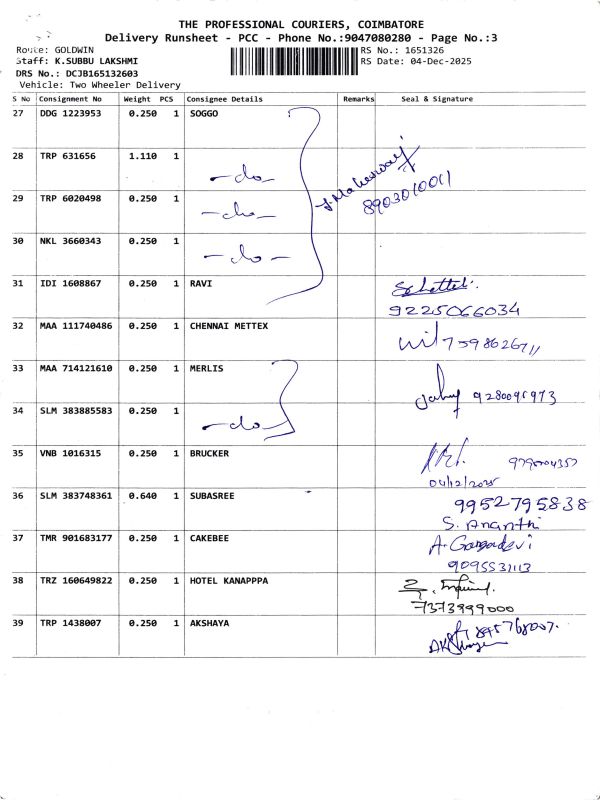 THE PROFESSIONAL COURIERS, COIMBATORE
Delivery Runsheet - PCC - Phone No.:9047080280 - Page No.:3
Route: GOLDWIN
RS No.: 1651326
Staff: K.SUBBU LAKSHMI
RS Date: 04-Dec-2025
DRS No.: DCJB165132603
Vehicle: Two Wheeler Delivery
S No Consignment No Weight PCS Consignee Details Remarks Seal & Signature
27 DDG 1223953 0.250 1 SOGGO
28 TRP 631656 1.110 1 -do-
8903010011
29 TRP 6020498 0.250 1 -do-
30 NKL 3660343 0.250 1 -do-
31 IDI 1608867 0.250 1 RAVI
9225066034
32 MAA 111740486 0.250 1 CHENNAI METTEX
7598626711
33 MAA 714121610 0.250 1 MERLIS
34 SLM 383885583 0.250 1 -do-
35 VNB 1016315 0.250 1 BRUCKER
04/12/2025
36 SLM 383748361 0.640 1 SUBASREE 9952795838
S. Ananthi
37 TMR 901683177 0.250 1 CAKEBEE
38 TRZ 160649822 0.250 1 HOTEL KANAPPPA
7373999000
39 TRP 1438007 0.250 1 AKSHAYA